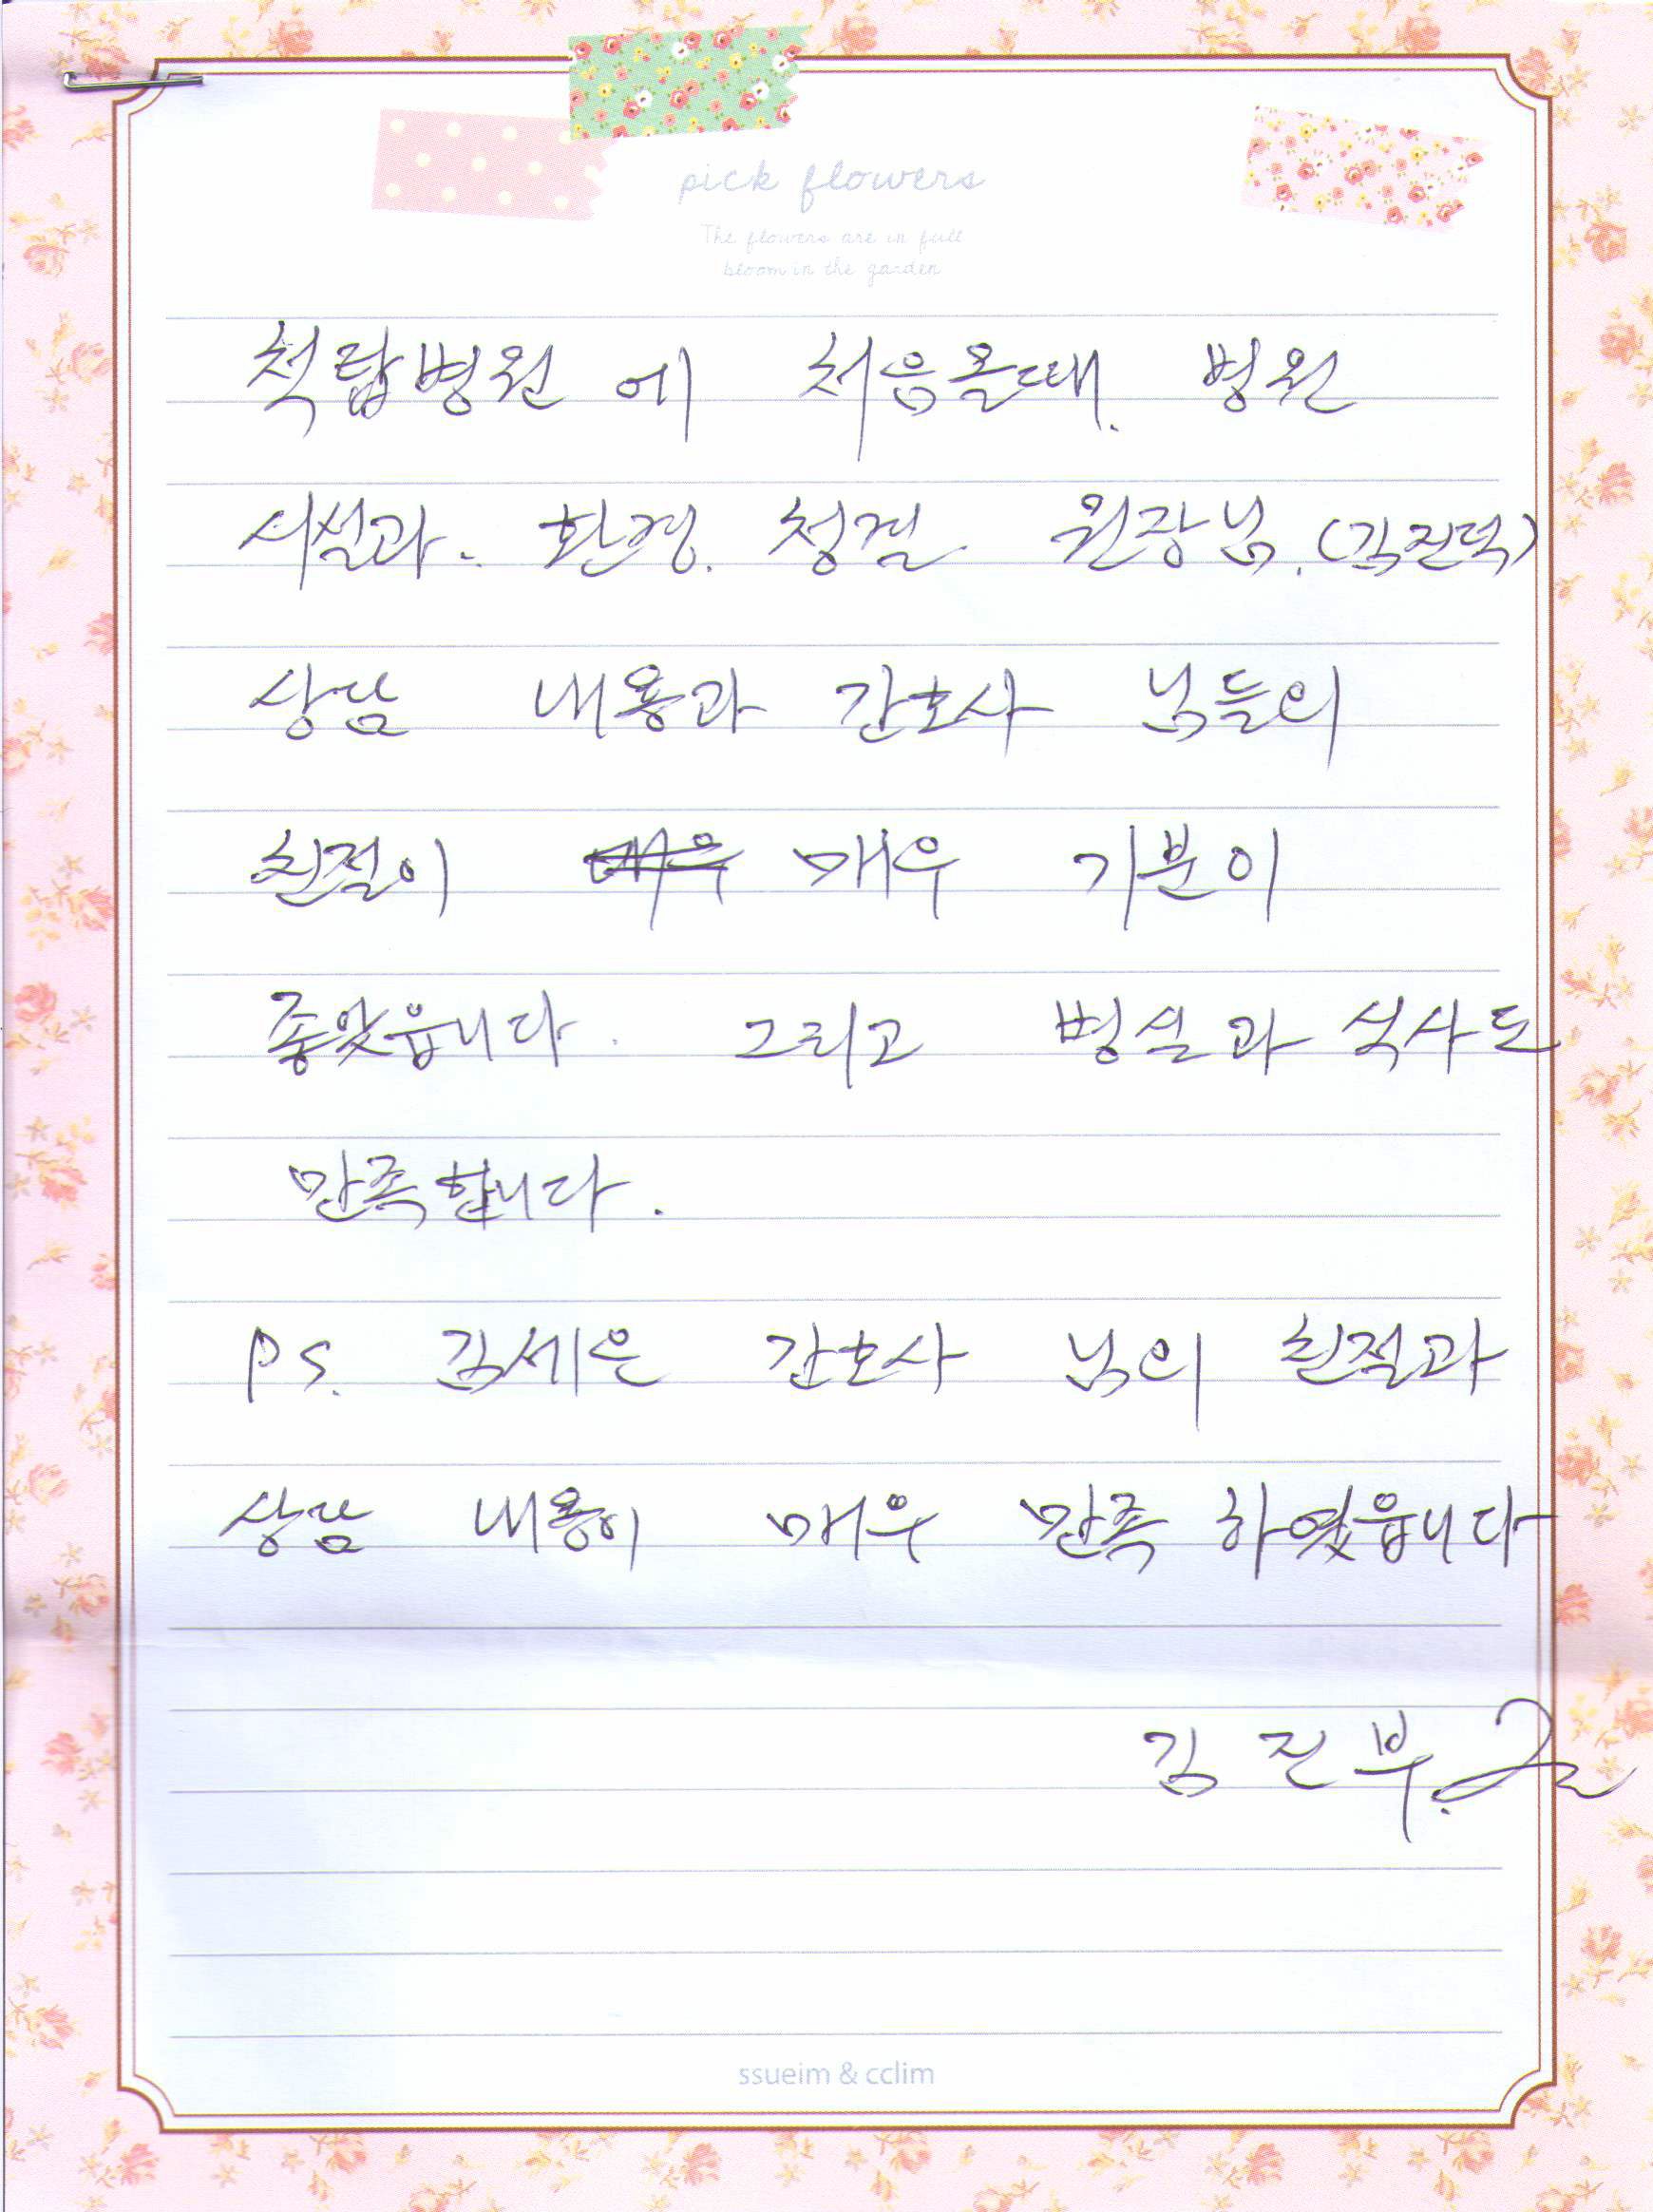 pick flowers
The flowers are in full
bloom in the garden
척탑병원 에 처음올때. 병원
시설과. 환경. 청결. 원장님. (김진덕)
상담 내용과 간호사 님들의
친절이 매우 매우 기분이
좋왔읍니다. 그리고 병실과 식사도
만족합니다.
PS. 김세은 간호사 님의 친절과
상담 내용이 매우 만족 하였읍니다
김진부.
ssueim & cclim